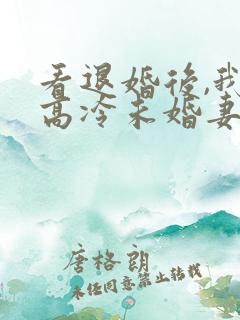 看退婚后,我
高冷未婚妻
唐格朗
未经同意禁止转载